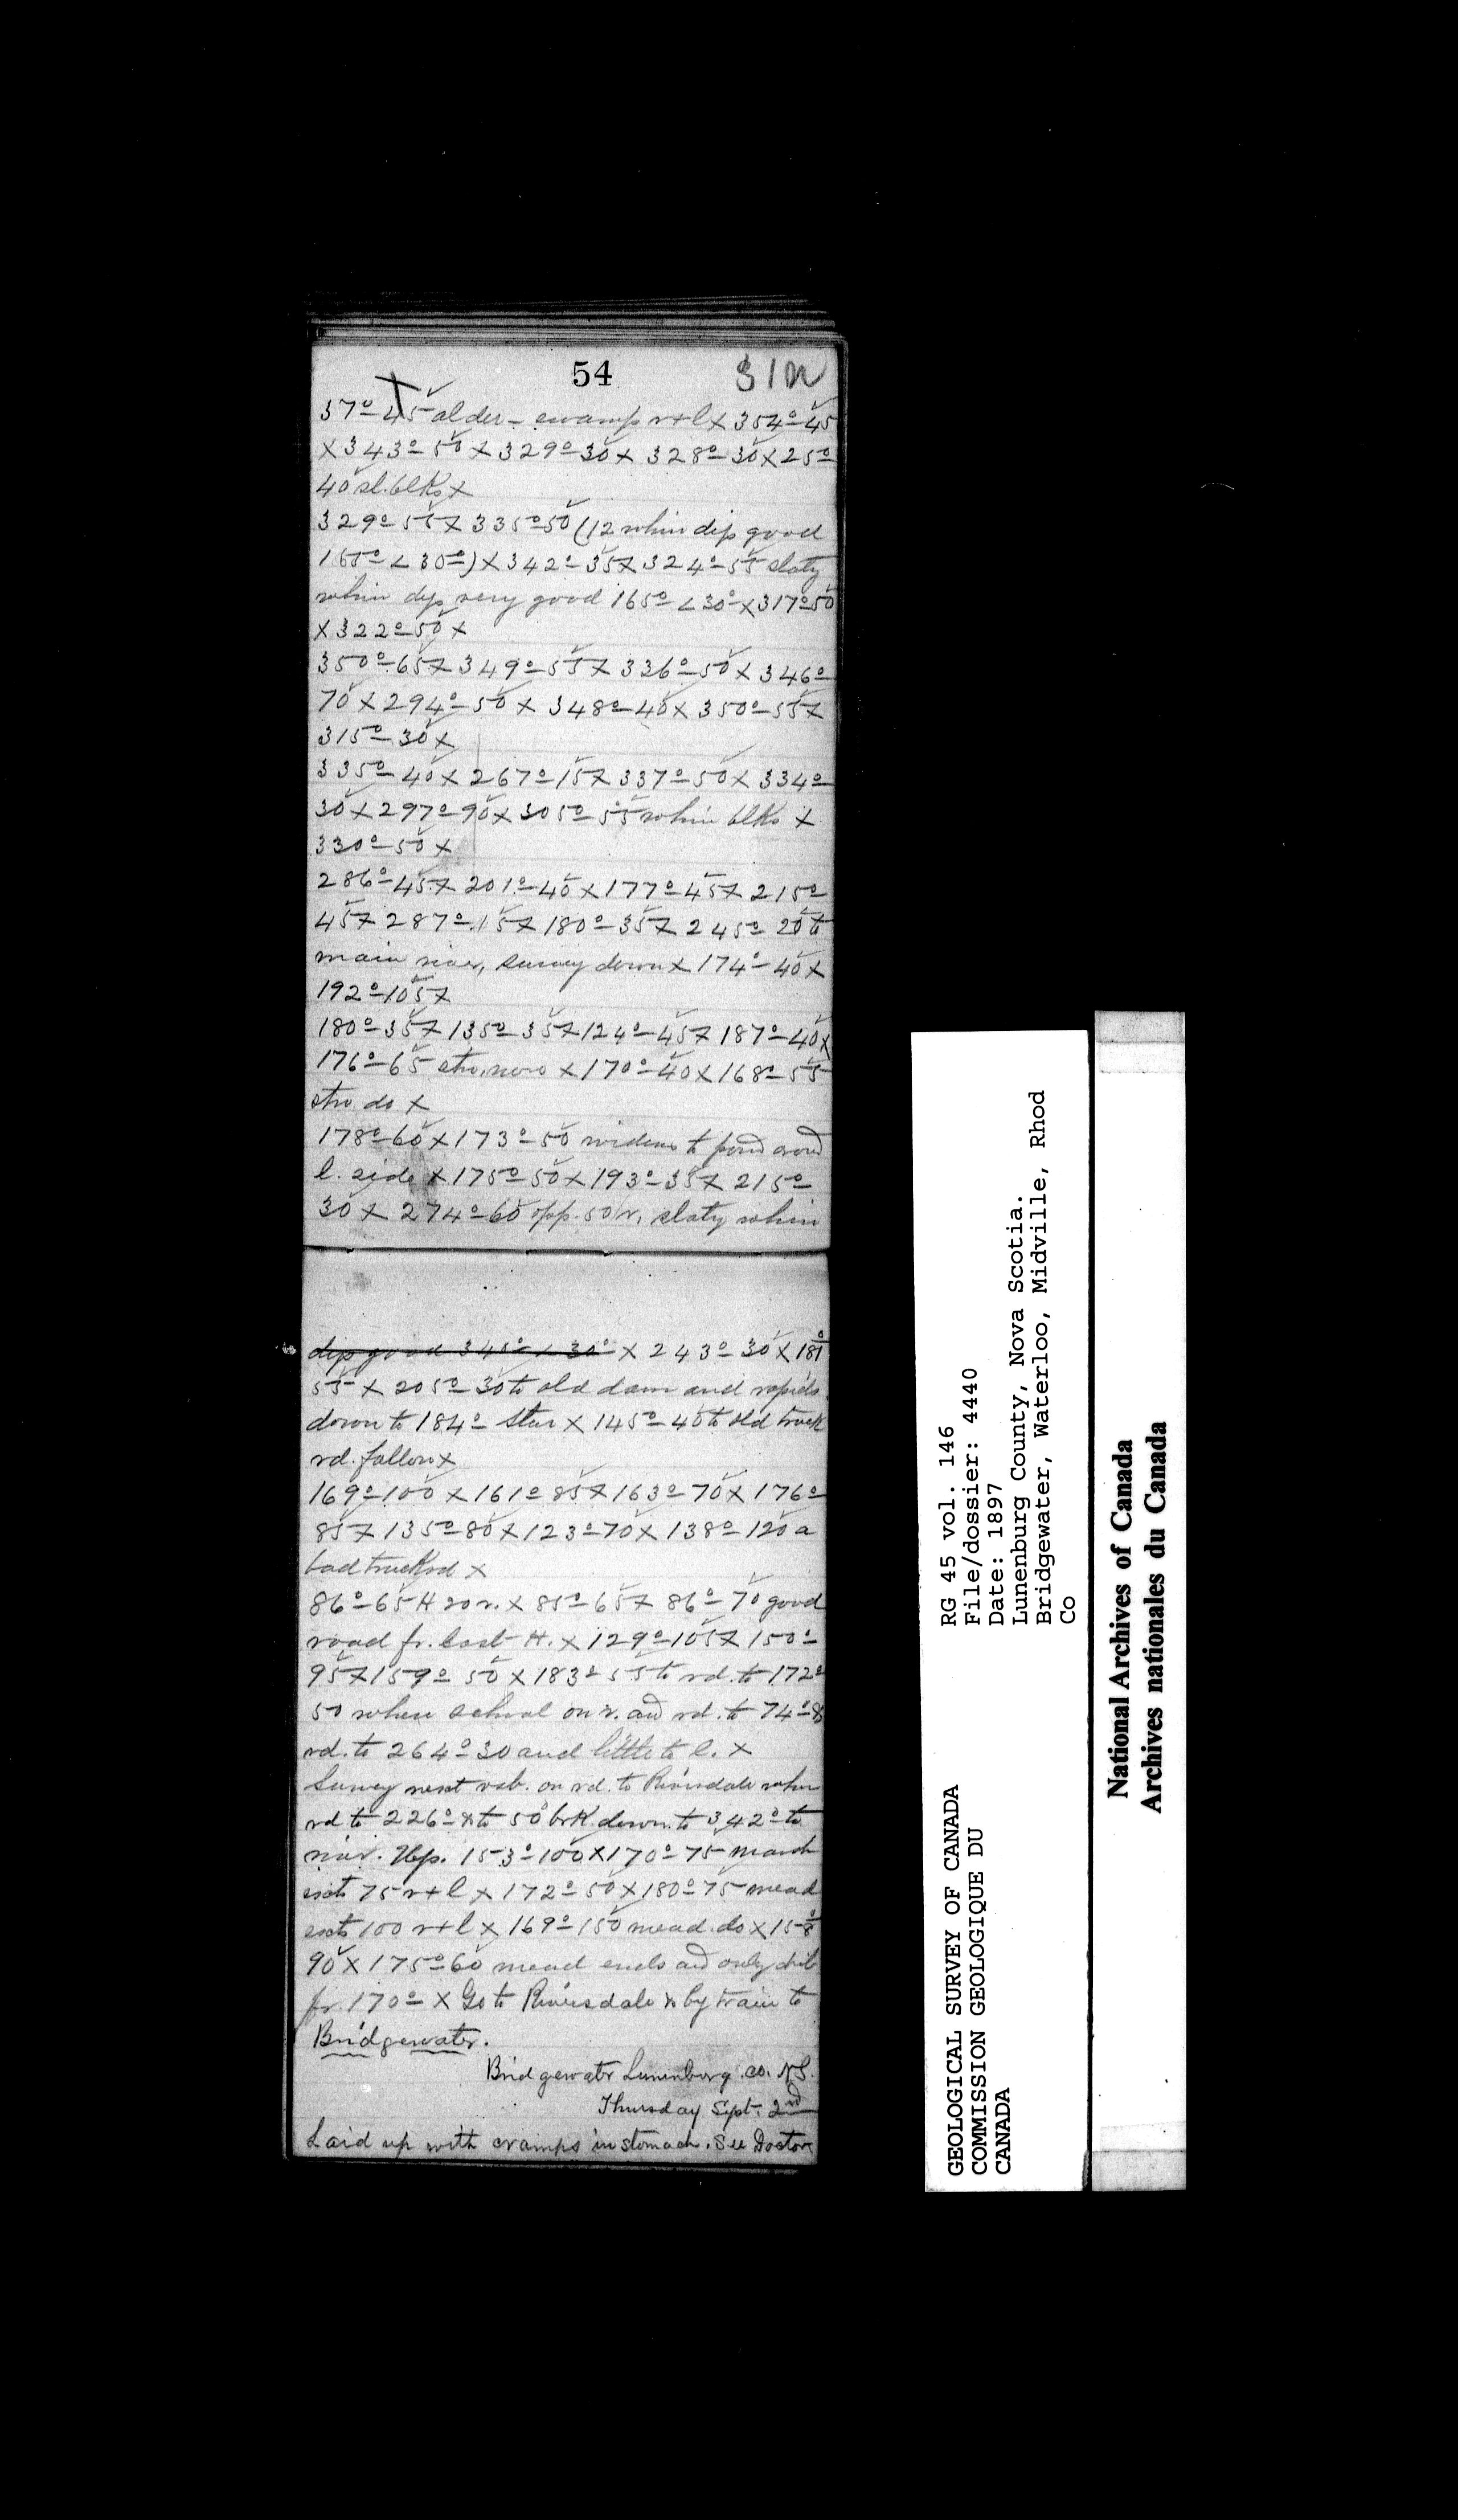 54
37º–45 alder – swamp r+l x 354º–45
x 343º–50 x 329º–30 x 328º–30 x 25º
40 sl. blks x
329º–55 x 335º–50 (12 whin dip good
165º < 30º) x 342º–35 x 324º–55 slaty
whin dip very good 165º < 30º x 317º 50
x 322º–50 x
350º–65 x 349º–55 x 336º–50 x 346º
70 x 294º–50 x 348º–40 x 350º–55 x
315º–30 x
335º–40 x 267º–15 x 337º–50 x 334º
30 x 297º–90 x 305º–55 whin blks x
330º–50 x
286º–45 x 201º–40 x 177º–45 x 215º
45 x 287º–15 x 180º–35 x 245º 20 to
main river, survey down x 174º–40 x
192º–105 x
180º–35 x 135º–35 x 124º–45 x 187º–40 x
176º–65 x 170º–40 x 168º–55
do x
178º–60 x 173º–50 widens to pond
l. side x 175º–50 x 193º–35 x 215º
30 x 274º–60 opp. 50 r, slaty whin
dip good 345º < 30º x 243º–30 x 181º
55 x 205º–30 to old dam and rapids
down to 184º x 145º–40 to old truck
rd. follow x
169º–100 x 161º 85 x 163º–70 x 176º
85 x 135º–80 x 123º–70 x 138º–120 a
bad truck rd x
86º–65 H 20 r. x 85º–65 x 86º–70 good
road fr. last H. x 129º–105 x 150º
95 x 159º 50 x 183º 55 to rd. to 172º
50 where school on r. and rd. to 74º
rd. to 264º–30 and little to l. x
Survey next on rd. to Riversdale when
rd to 226º to 50 brk down to 342º to
river. Up. 153º–100 x 170º–75 marsh
exts 75 r+l x 172º–50 x 180º–75 mead
exts 100 r+l x 169º–150 mead. do x
90 x 175º–60 mead ends and only
fr. 170º x Go to Riversdale & by train to
Bridgewater.
Bridgewater Lunenburg. co. N.S.
Thursday Sept. 2nd
Laid up with cramps in stomach. See Doctor
GEOLOGICAL SURVEY OF CANADA
COMMISSION GEOLOGIQUE DU
CANADA
RG 45 vol. 146
File/dossier: 4440
Date: 1897
Lunenburg County, Nova Scotia.
Bridgewater, Waterloo, Midville, Rhod
Co
National Archives of Canada
Archives nationales du Canada